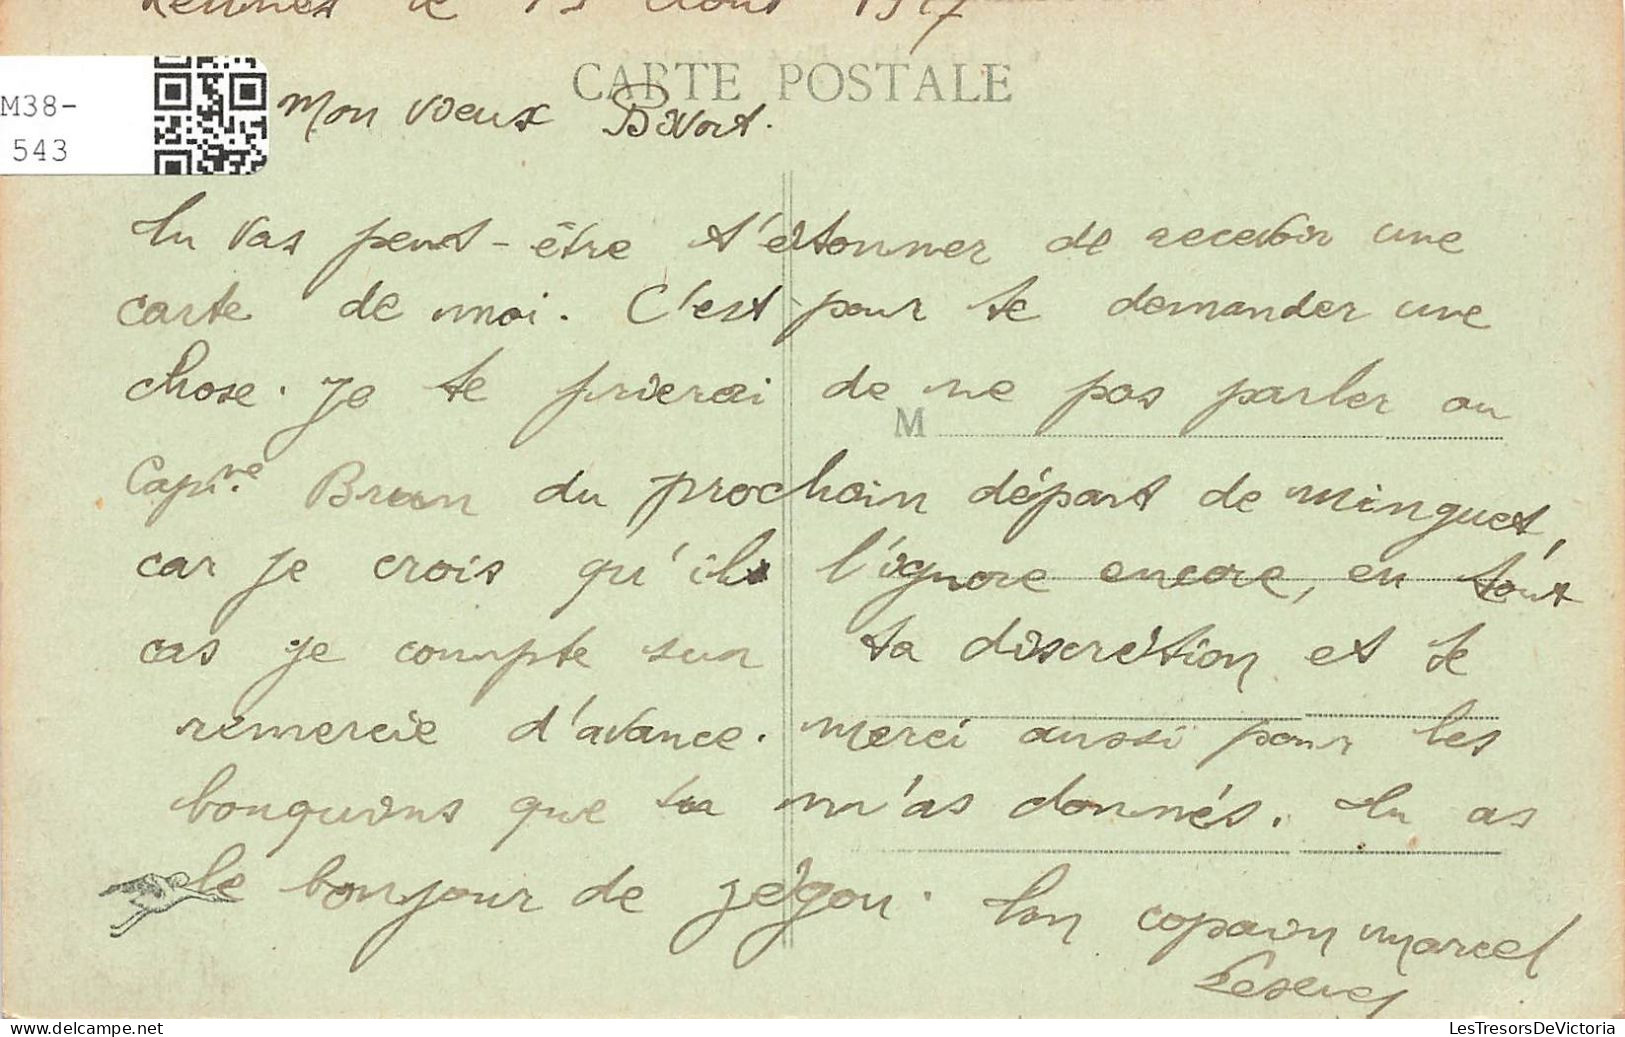 Rennes le 13 Août 1917
CARTE POSTALE
M38-
543
Mon vieux Bivort.
Tu vas peut-être t'étonner de recevoir une
carte de moi. C'est pour te demander une
chose. Je te prierai de ne pas parler au
M
Capine Brun du prochain départ de Minguet,
car je crois qu'il l'ignore encore, en tout
cas je compte sur ta discrétion et te
remercie d'avance. Merci aussi pour les
bouquins que tu m'as donnés. Tu as
le bonjour de Jégou. Ton copain Marcel
LesTresorsDeVictoria
© www.delcampe.net